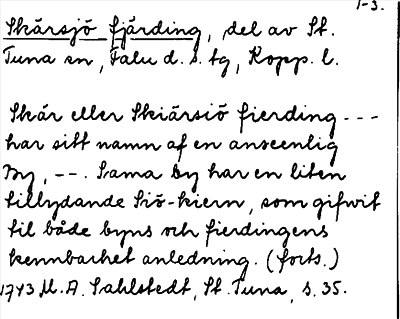 1-3.
Skärsjö fjärding, del av St.
Tuna sn, Falu d. s. tg, Kopp. l.
Skär eller Skiärsiö fierding ---
har sitt namn af en anseenlig
By, --. Sama by har en liten
tillydande Siö-kiern, som gifwit
til både byns och fierdingens
kennbarhet anledning. (forts.)
1743 M. A. Sahlstedt, St. Tuna, s. 35.